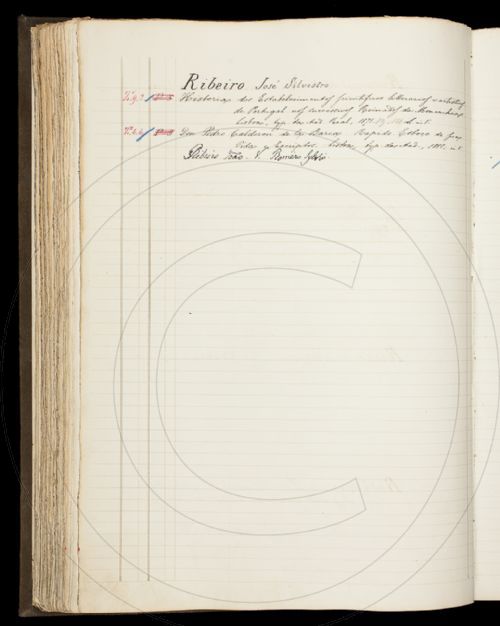 Ribeiro José Silvestre
Historia dos Estabelecimentos scientificos litterarios e artisticos
de Portugal nos successivos Reinados da Monarchia
Lisboa, typ. da Acd. Real, 1871
Don Pedro Calderon de la Barca. Rapido Esboço da sua
Vida e Escriptos. Lisboa, typ. da Acd., 1881.
Ribeiro João V. Romero